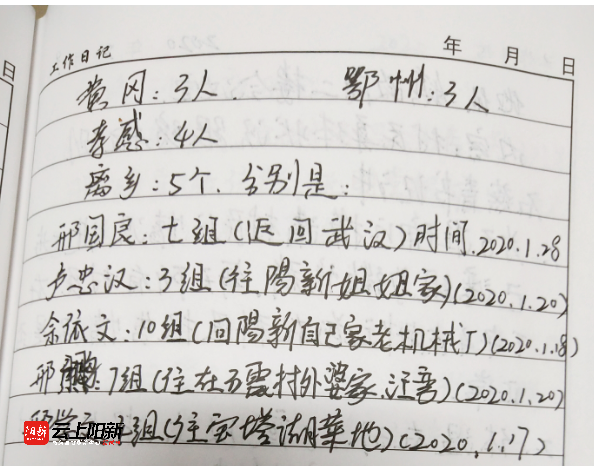 日
工作日记 年 月 日
黄冈：3人. 鄂州：3人
孝感：4人
离乡：5个. 分别是：
邢国良：七组(返回武汉)时间.2020.1.28
卢忠汉：3组(住陽新姐姐家)(2020.1.20)
余依文：10组(回陽新自己家老机械厂)(2020.1.18)
邢 7组(住在五震村外婆家.汪善)(2020.1.20)
组(住宝塔湖菜地)(2020.1.17)
阳新 云上阳新